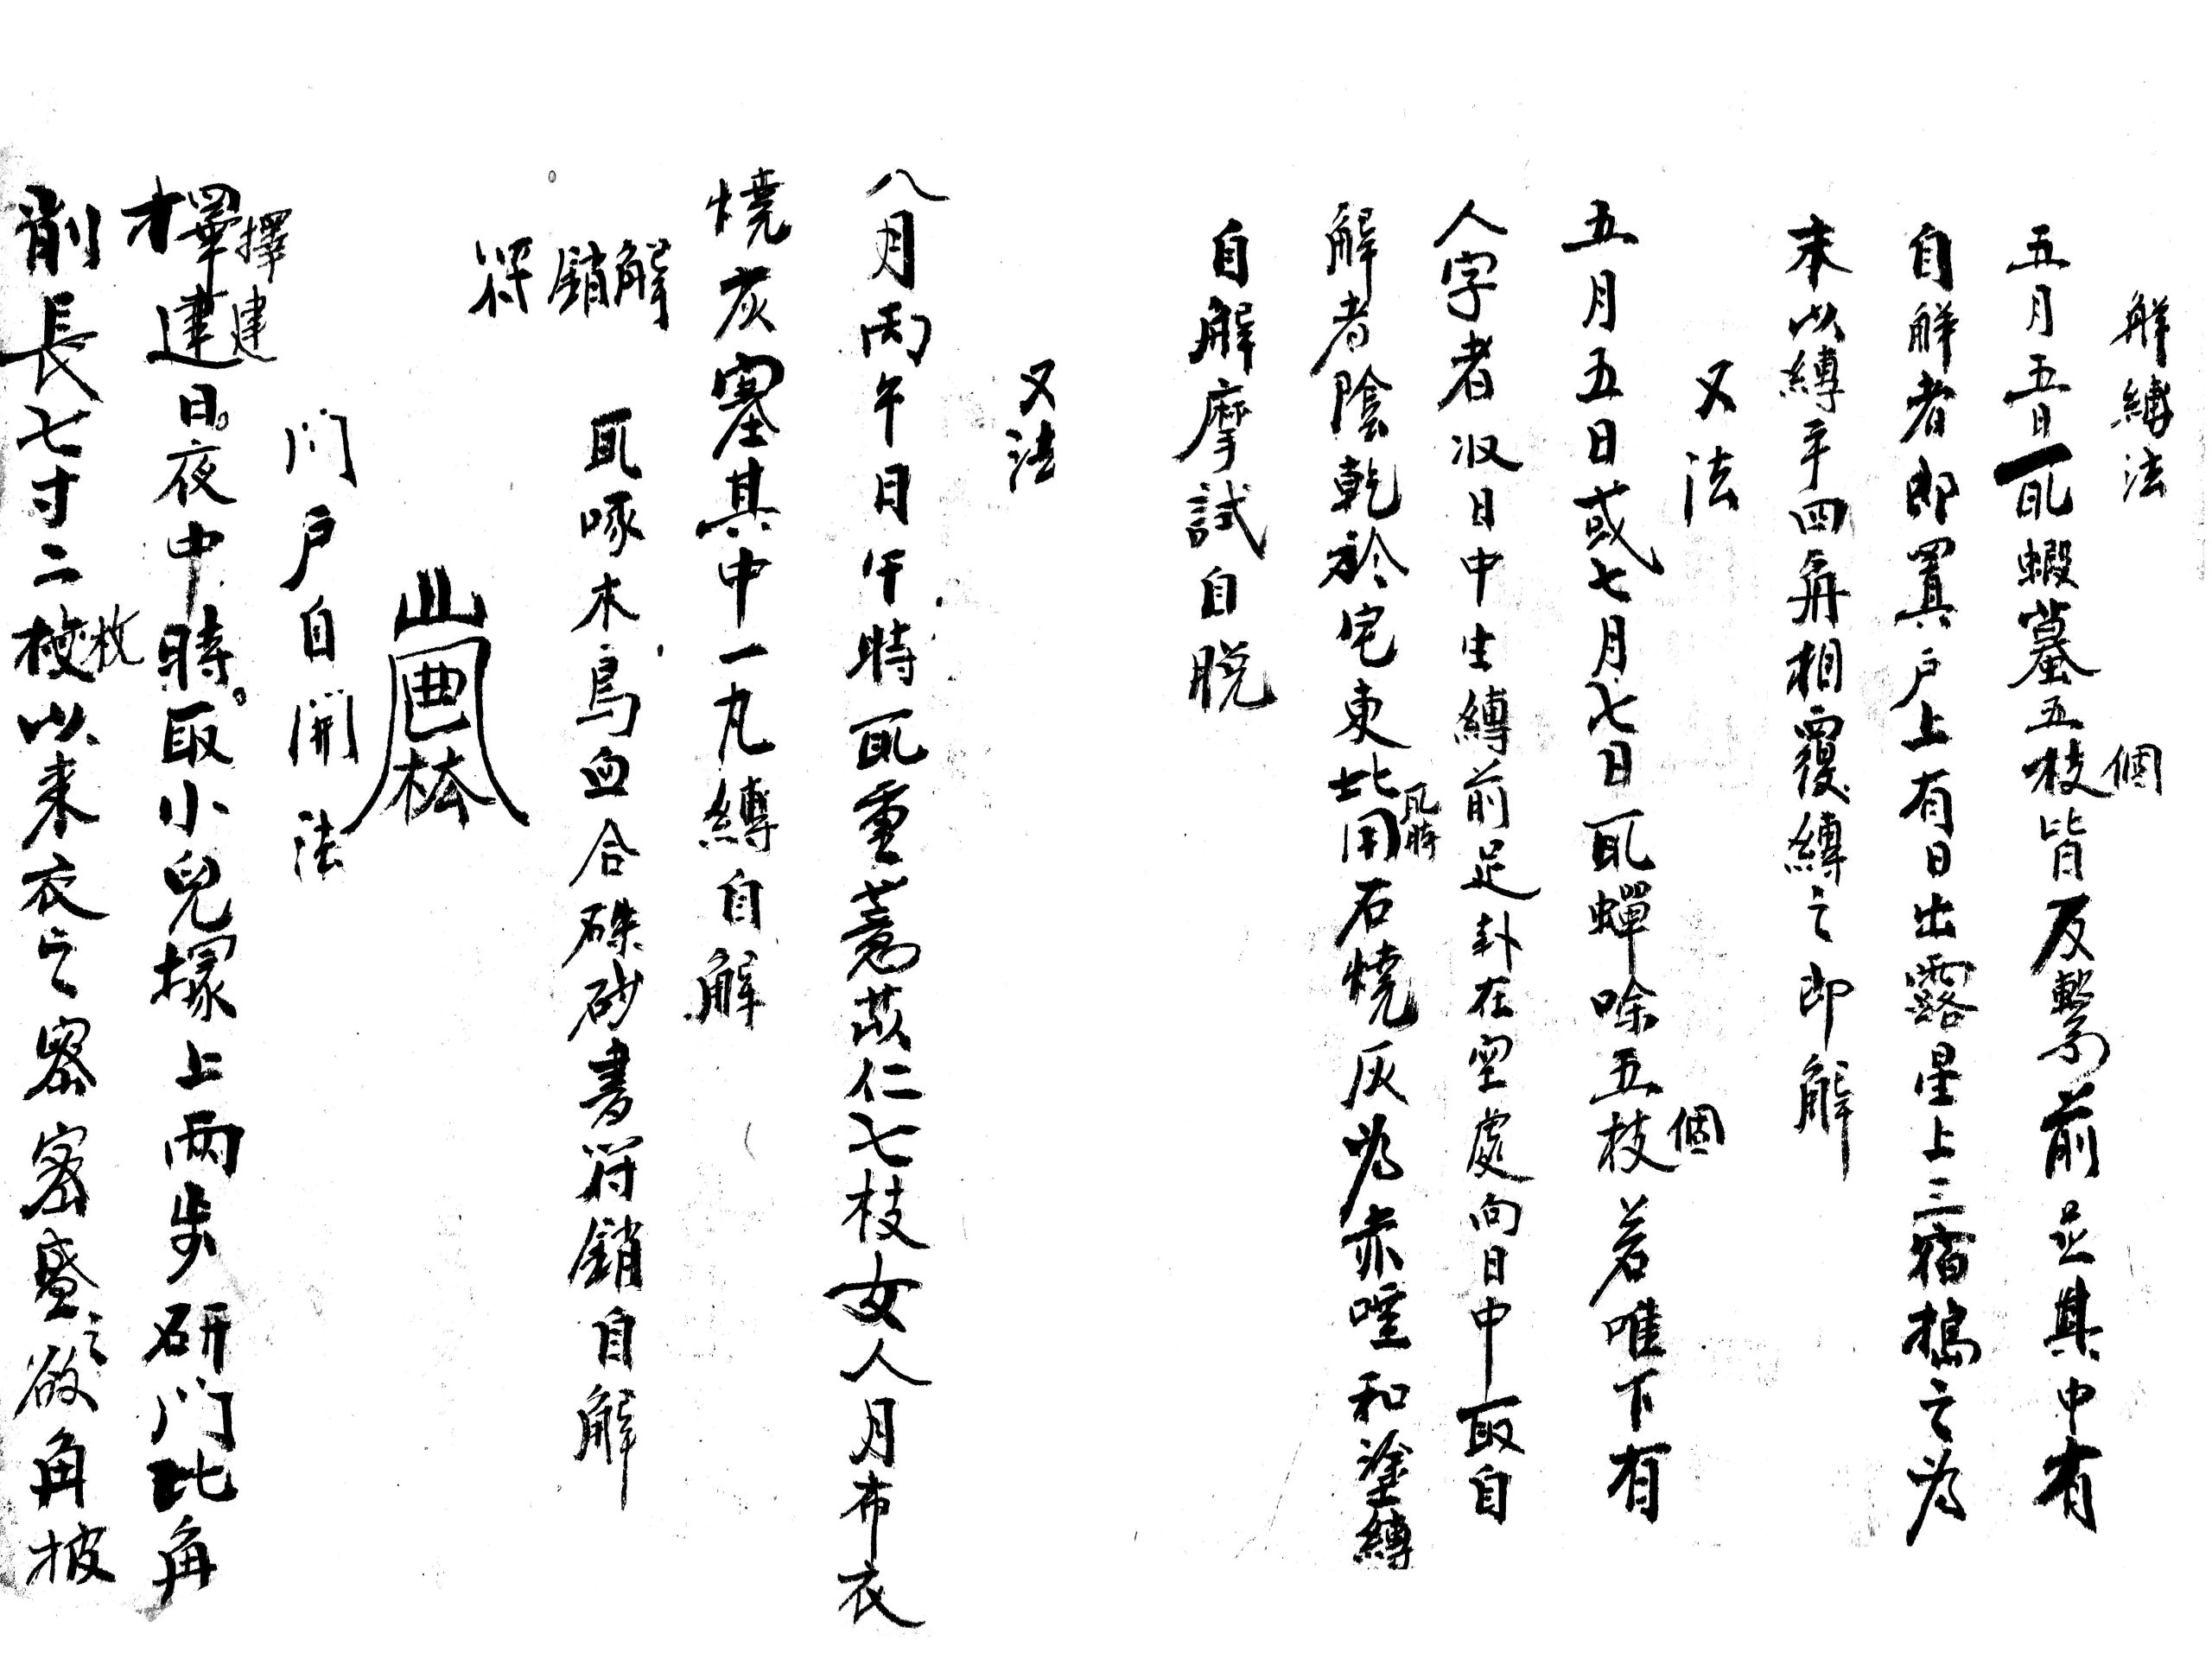 解縛法
五月五日取蝦蟇五枝皆反繫前並其中有
個
自解者即置戶上有日出露星上三宿搗之為
末以縛手四角相覆縛之即解
又法
五月五日或七月七日取蟬除五枝若唯下有
個
人字者収日中生縛前足卦在空處向日中取自
解者陰乾於宅東北用石燒灰為赤和塗縛
自解摩試自脱
又法
八月丙午月午時取重薏苡仁七枝女人月布衣
燒灰塞其中一丸縛自解
解銷符
取啄木鳥血合硃砂書符銷自解
门户自開法
擇建
擇建日夜中時取小兒塚上兩步研门北角
枚
削長七寸二枚以来衣之密密盛之欲角披